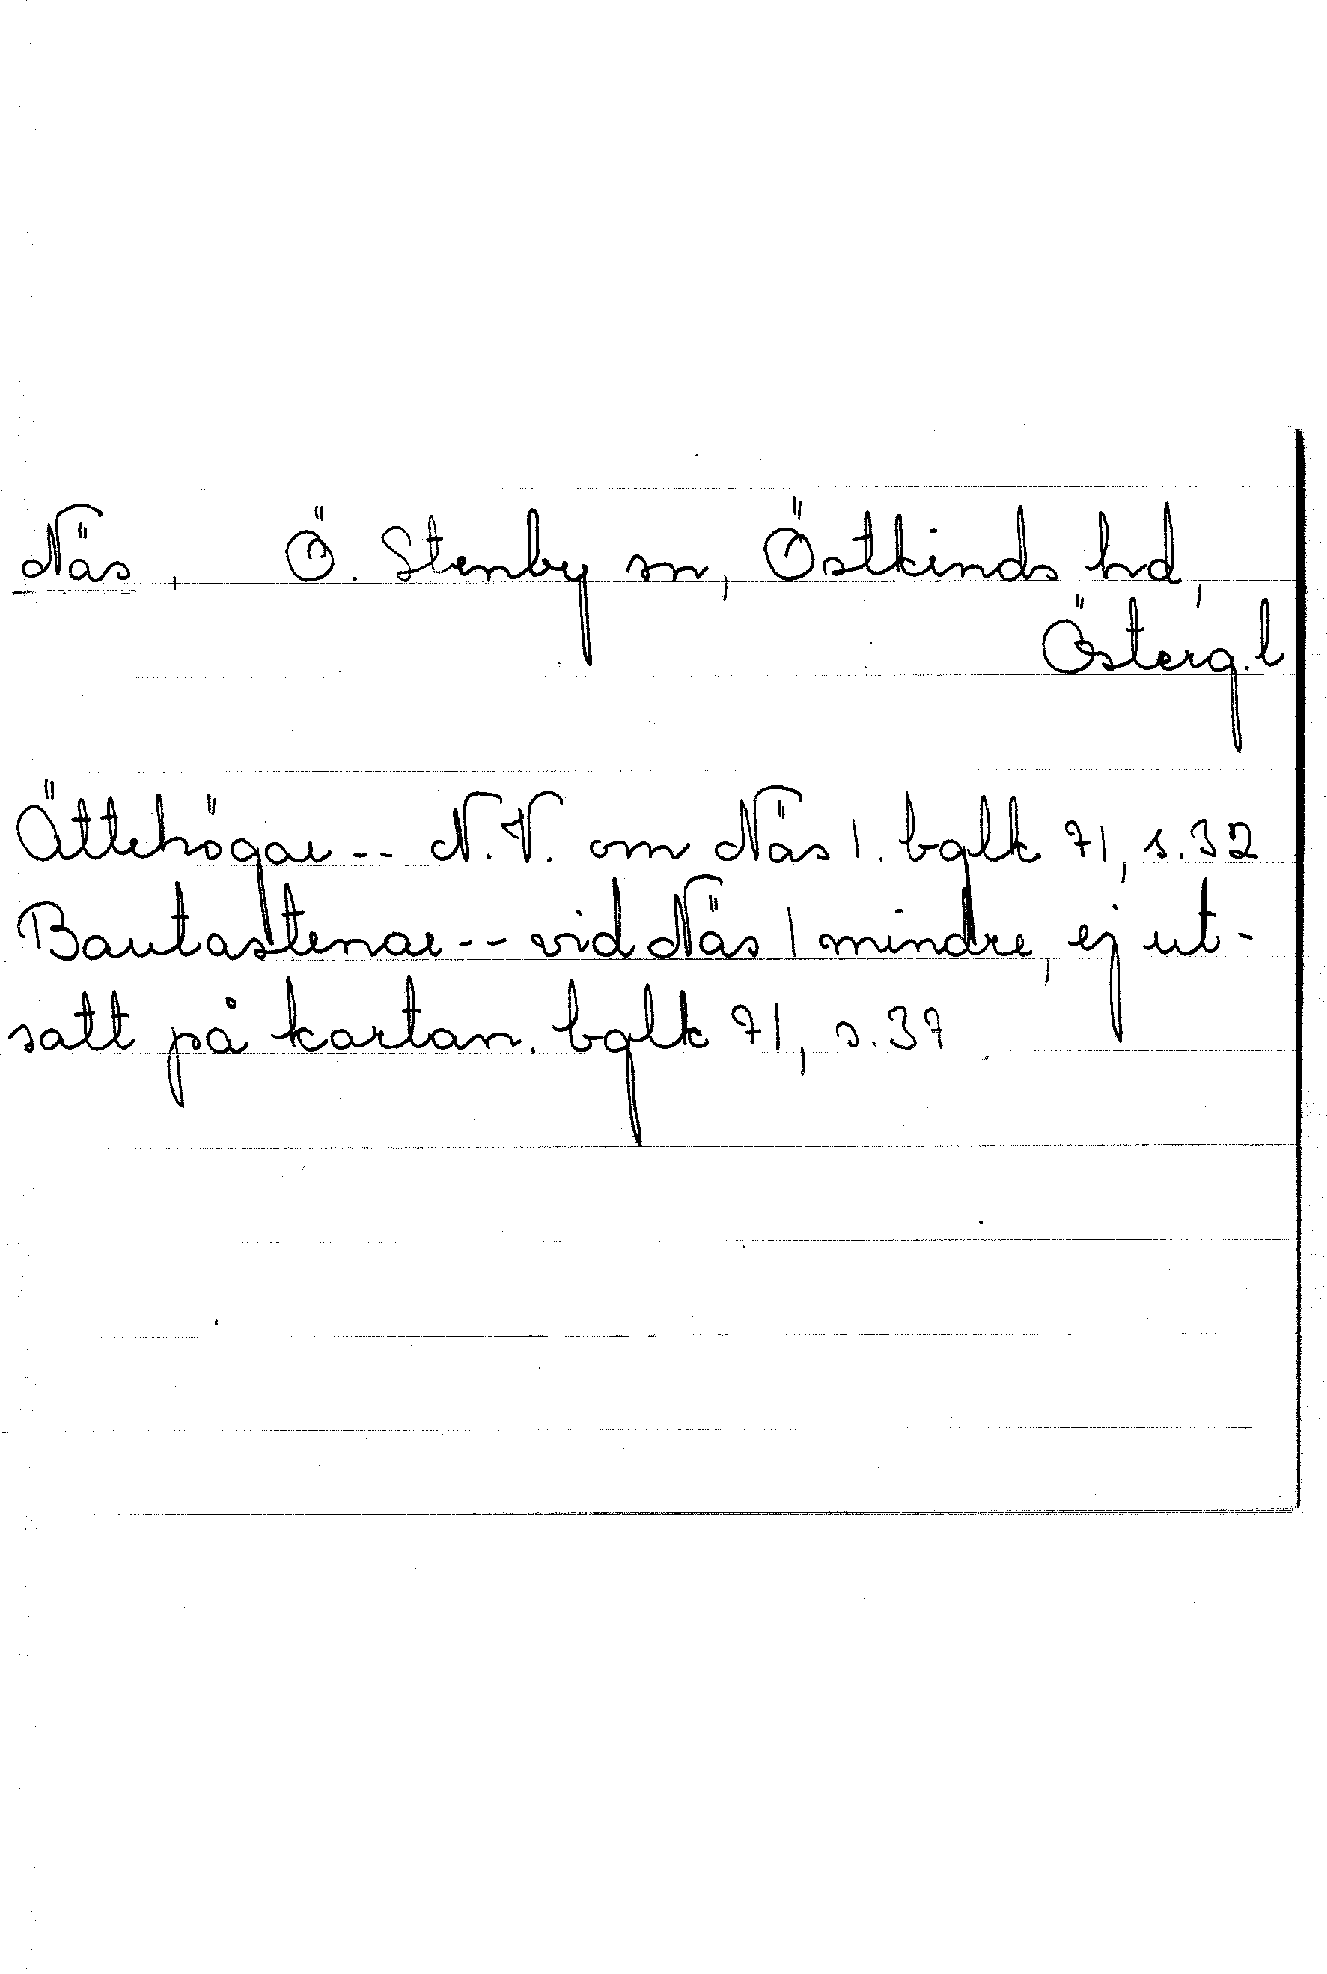 Näs, Ö. Stenby sn, Östkinds hd,
Österg. l
Ättehögar -- N.V. om Näs 1. bglk 71, s. 32
Bautastenar -- vid Näs 1 mindre, ej ut-
satt på kartan. bglk 71, s. 37